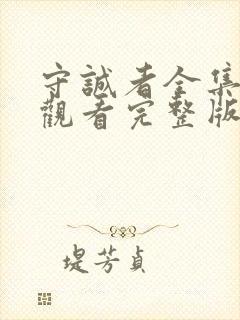 守誠者全集
觀看完整版
堤芳貞